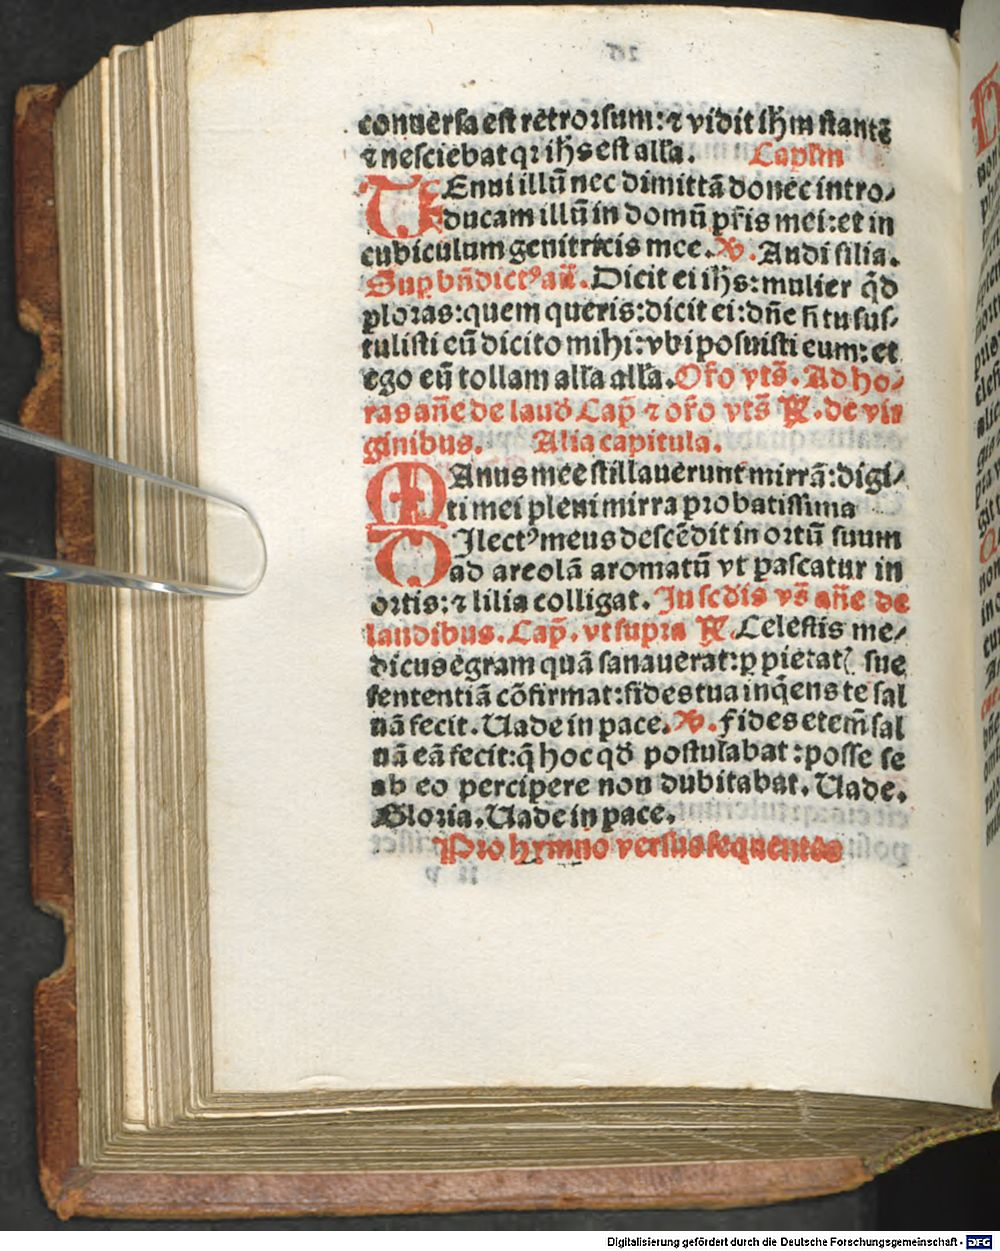 conuersa est retrorsum: ⁊ vidit ih̄m stantē
⁊ nesciebat qꝛ ih̄s est alľa. Caplm
TEnui illū nec dimittā donec intro⸗
ducam illū in domū pr̄is mei: et in
cubiculum genitricis mee. ℣. Audi filia.
Suꝑ bn̄dictꝰ añ. Dicit ei ih̄s: mulier qd̄
ploras: quem queris: dicit ei: dn̄e si tu sus⸗
tulisti eū dicito mihi: vbi posuisti eum: et
ego eū tollam alľa alľa. Oro vts̄. Ad ho⸗
ras an̄e de laud Cap̄ ⁊ oro vts̄ ℟. de vir
ginibus. Alia capitula.
MAnus mee stillauerunt mirrā: digi⸗
ti mei pleni mirra probatissima
DIlectꝰ meus descēdit in ortū suum
ad areolā aromatū vt pascatur in
ortis: ⁊ lilia colligat. In scďis vs̄ an̄e de
laudibus. Cap̄. vt supra ℟. Celestis me⸗
dicus egram quā sanauerat: ꝑ pietatꝭ sue
sententiā cōfirmat: fides tua inqͥens te sal
uā fecit. Uade in pace. ℣. Fides etem̄ sal
uā eā fecit: q̄ hoc qd̄ postulabat: posse se
ab eo percipere non dubitabat. Uade.
Gloria. Uade in pace.
Pro hymno versus sequentes
Digitalisierung gefördert durch die Deutsche Forschungsgemeinschaft - DFG